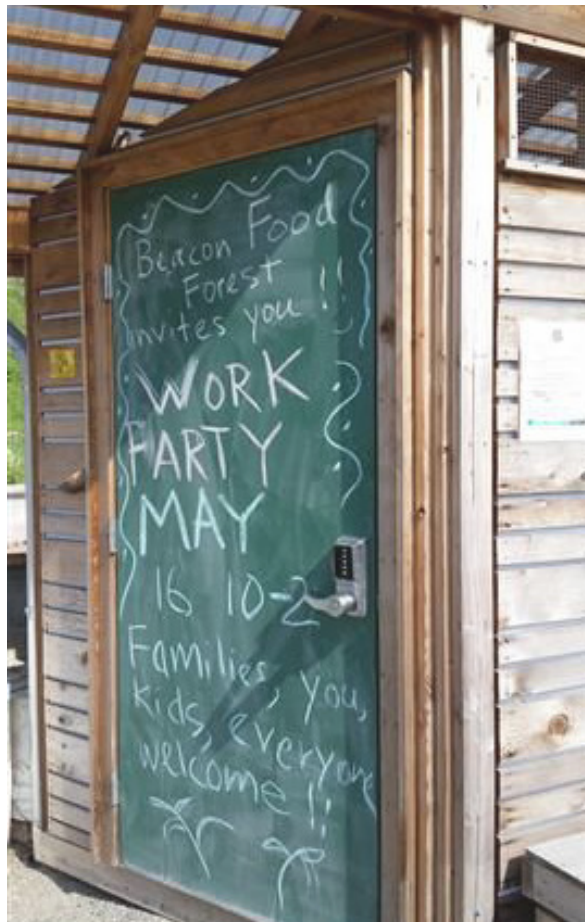 Beacon Food
Forest
invites you !!
WORK
PARTY
MAY
16 10-2
Families, you,
kids, everyone
welcome !!